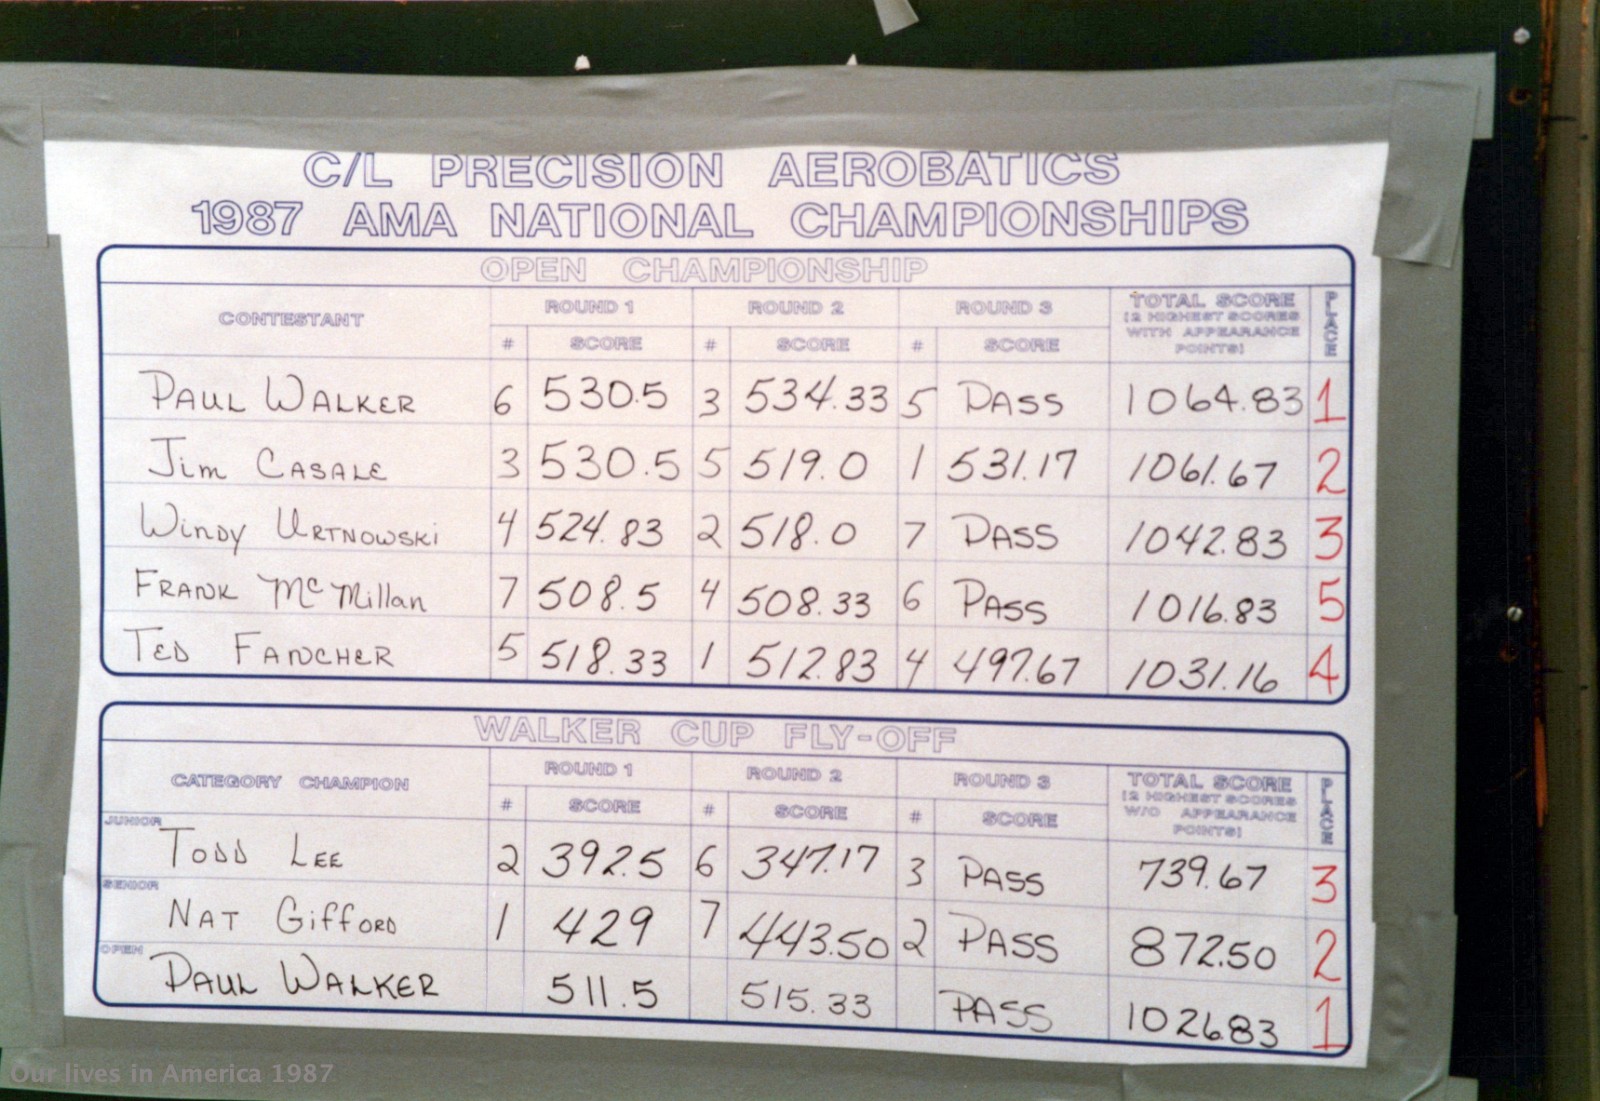 C/L PRECISION AEROBATICS
1987 AMA NATIONAL CHAMPIONSHIPS
OPEN CHAMPIONSHIP
CONTESTANT ROUND 1 ROUND 2 ROUND 3 TOTAL SCORE (2 HIGHEST SCORES WITH APPEARANCE POINTS) PLACE
# SCORE # SCORE # SCORE
PAUL WALKER 6 530.5 3 534.33 5 PASS 1064.83 1
Jim CASALE 3 530.5 5 519.0 1 531.17 1061.67 2
WINDY URTNOWSKi 4 524.83 2 518.0 7 PASS 1042.83 3
FRANK McMillan 7 508.5 4 508.33 6 PASS 1016.83 5
TED FANCHER 5 518.33 1 512.83 4 497.67 1031.16 4
WALKER CUP FLY-OFF
CATEGORY CHAMPION ROUND 1 ROUND 2 ROUND 3 TOTAL SCORE (2 HIGHEST SCORES W/O APPEARANCE POINTS) PLACE
# SCORE # SCORE # SCORE
JUNIOR
TODD LEE 2 392.5 6 347.17 3 PASS 739.67 3
SENIOR
NAT GiffORD 1 429 7 443.50 2 PASS 872.50 2
OPEN
PAUL WALKER 511.5 515.33 PASS 1026.83 1
Our lives in America 1987